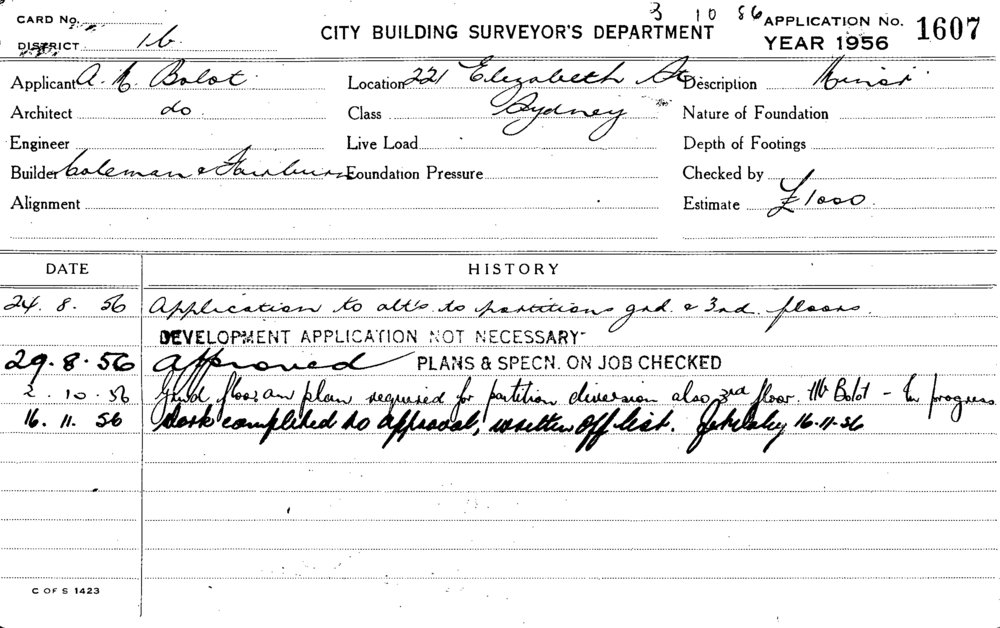 CARD No.
3 10 56
CITY BUILDING SURVEYOR'S DEPARTMENT
APPLICATION No. 1607
DISTRICT 1b.
YEAR 1956
Applicant A. M. Bolot
Location 221 Elizabeth St
Description Minor
Architect do
Class Sydney
Nature of Foundation
Engineer
Live Load
Depth of Footings
Builder Coleman & Fairburn
Foundation Pressure
Checked by
Alignment
Estimate £1000
DATE HISTORY
24. 8. 56 Application to alt's to partitions grd. & 3rd. floors.
DEVELOPMENT APPLICATION NOT NECESSARY
29. 8. 56 Approved PLANS & SPECN. ON JOB CHECKED
2. 10. 56 floor plan required for partition also 3rd floor. Mr Bolot - In progress
16. 11. 56 Work completed to approval, written off list. 16-11-56
C OF S 1423